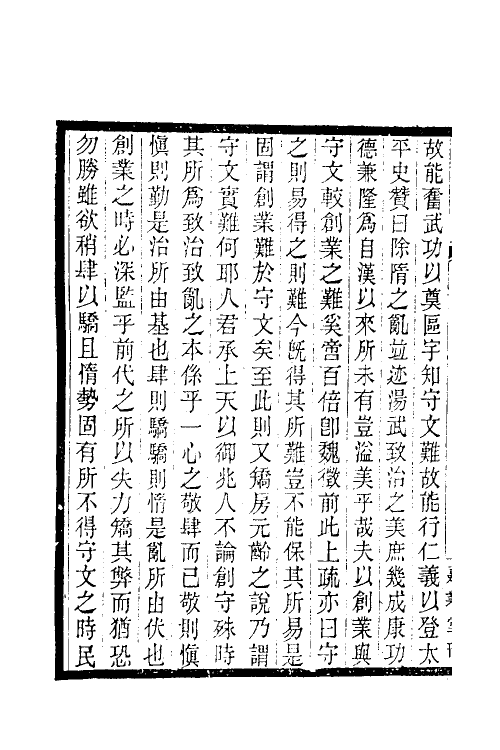 故能奮武功以奠區宇知守文難故能行仁義以登太
平史贊曰除隋之亂並迹湯武致治之美庶幾成康功
德兼隆爲自漢以來所未有豈溢美乎哉夫以創業與
守文較創業之難奚啻百倍卽魏徵前此上疏亦曰守
之則易得之則難今旣得其所難豈不能保其所易是
固謂創業難於守文矣至此則又矯房元齡之說乃謂
守文實難何耶人君承上天以御兆人不論創守殊時
其所爲致治致亂之本係乎一心之敬肆而已敬則愼
愼則勤是治所由基也肆則驕驕則惰是亂所由伏也
創業之時必深監乎前代之所以失力矯其弊而猶恐
勿勝雖欲稍肆以驕且惰勢固有所不得守文之時民